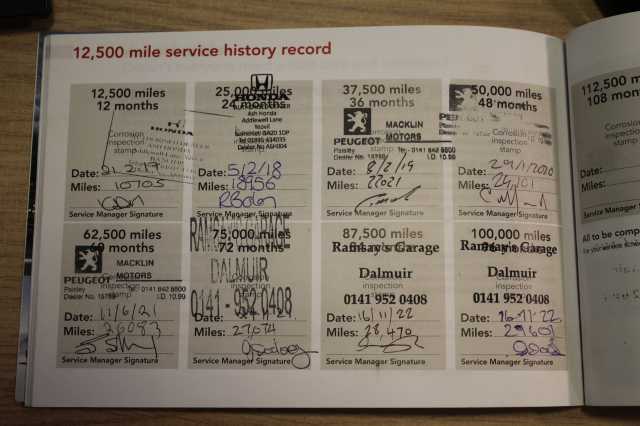 12,500 mile service history record
12,500 miles
12 months
Corrosion
inspection
stamp
HONDA
Date: 21.2.17
Miles: 10705
Service Manager Signature
25,000 miles
24 months
HONDA
Ash Honda
Addlewell Lane
Yeovil
Somerset BA20 1QP
Tel 01935
Date: 5/2/18
Miles: 18956
Service Manager Signature
37,500 miles
36 months
MACKLIN
MOTORS
PEUGEOT
Paisley Tel - 0141 842 6600
Dealer No. I.D. 10.99
Date: 8/2/19
Miles: 22021
Service Manager Signature
50,000 miles
48 months
MACKLIN
MOTORS
PEUGEOT
Corrosion
inspection
stamp
Date: 29/1/2020
Miles:
Service Manager Signature
62,500 miles
60 months
MACKLIN
MOTORS
PEUGEOT
Paisley Tel - 0141 842 6600
Dealer No. I.D. 10.99
Date: 11/6/21
Miles: 26093
Service Manager Signature
75,000 miles
72 months
DALMUIR
inspection
0141 - 952 0408
Date:
Miles: 27,074
Service Manager Signature
87,500 miles
Ramsay's Garage
Dalmuir
inspection
0141 952 0408
Date: 16/11/22
Miles: 28,470
Service Manager Signature
100,000 miles
Ramsay's Garage
Dalmuir
inspection
0141 952 0408
Date: 16.11.22
Miles: 29601
Service Manager Signature
112,500 mi
108 mon
Date:
Miles:
Service Manager S
All to be comp